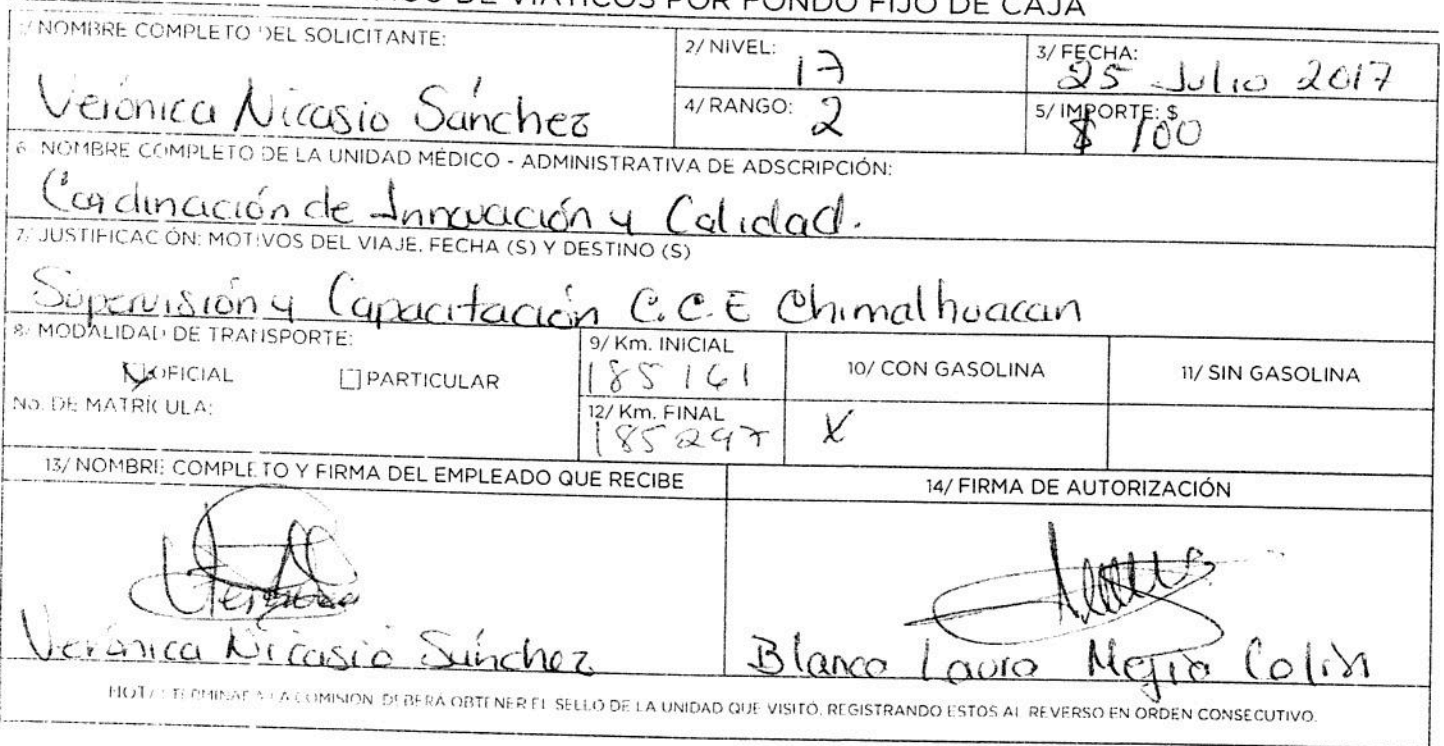 DE VIÁTICOS POR FONDO FIJO DE CAJA
1/ NOMBRE COMPLETO DEL SOLICITANTE:
Verónica Nicasio Sánchez
2/ NIVEL: 17
3/ FECHA: 25 Julio 2017
4/ RANGO: 2
5/ IMPORTE: $ $ 100
6/ NOMBRE COMPLETO DE LA UNIDAD MÉDICO - ADMINISTRATIVA DE ADSCRIPCIÓN:
Coordinación de Innovación y Calidad.
7/ JUSTIFICACIÓN: MOTIVOS DEL VIAJE, FECHA (S) Y DESTINO (S)
Supervisión y Capacitación C.C.E Chimalhuacan
8/ MODALIDAD DE TRANSPORTE:
OFICIAL PARTICULAR
No. DE MATRÍCULA:
9/ Km. INICIAL
185161
10/ CON GASOLINA
11/ SIN GASOLINA
12/ Km. FINAL
185297
X
13/ NOMBRE COMPLETO Y FIRMA DEL EMPLEADO QUE RECIBE
14/ FIRMA DE AUTORIZACIÓN
Verónica Nicasio Sánchez
Blanca Laura Mejía Colín
NOTA: TERMINADA LA COMISION, DEBERÁ OBTENER EL SELLO DE LA UNIDAD QUE VISITÓ, REGISTRANDO ESTOS AL REVERSO EN ORDEN CONSECUTIVO.